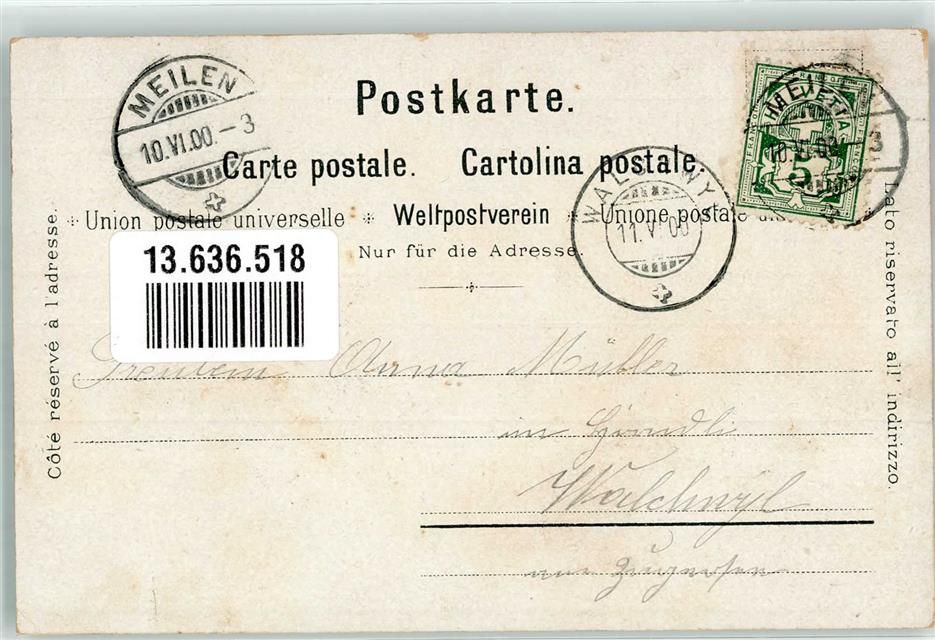 MEILEN
10.VI.00.-3
Postkarte.
Carte postale. Cartolina postale.
Union postale universelle Weltpostverein Unione postale
Nur für die Adresse.
HELVETIA
5
10.VI.00.-3
WALCHWYL
11.VI.00
13.636.518
Côté réservé à l'adresse.
Lato riservato all' indirizzo.
Fräulein Anna Müller
im
Walchwyl
am Zugersee